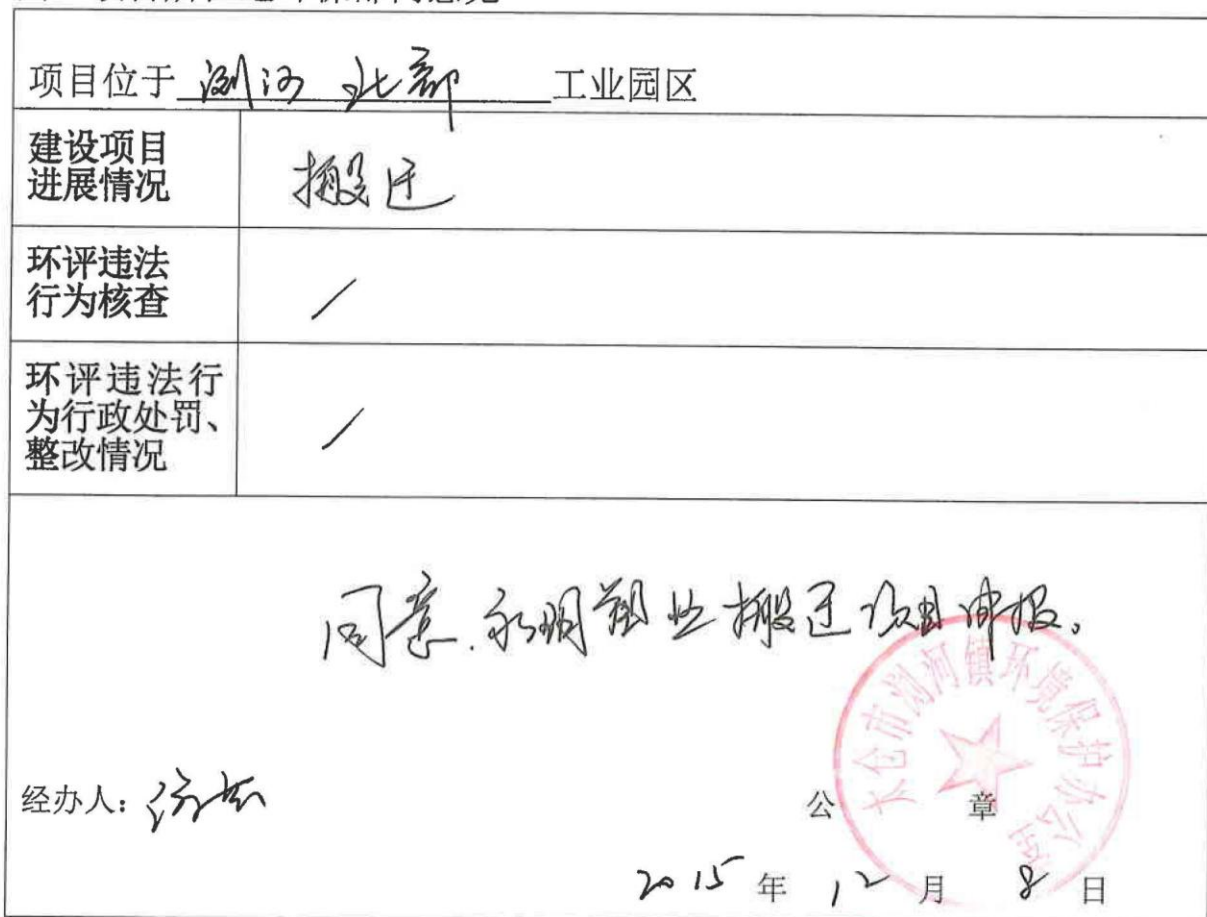 项目位于 浏河 北部 工业园区
建设项目
进展情况
搬迁
环评违法
行为核查
/
环评违法行
为行政处罚、
整改情况
/
同意.永明塑业搬迁项目申报。
太仓市浏河镇环境保护办公室
经办人:
公 章
2015 年 12 月 8 日